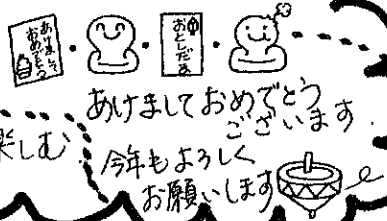 あけまして
おめでとう
おとしだま
あけましておめでとう
ございます.
楽しむ
今年もよろしく
お願いします